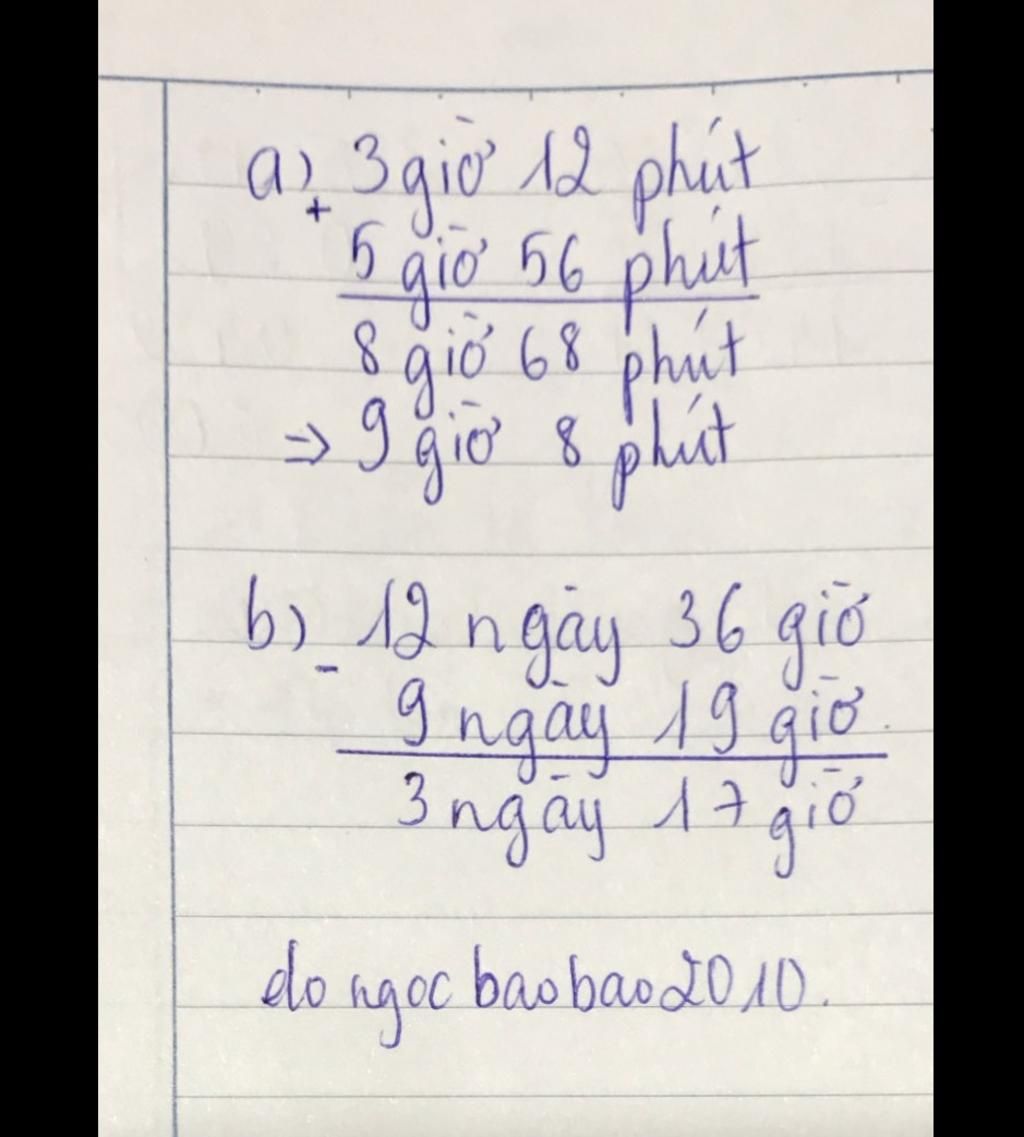 a) 3 giờ 12 phút
+
5 giờ 56 phút
8 giờ 68 phút
=> 9 giờ 8 phút
b) 12 ngày 36 giờ
-
9 ngày 19 giờ
3 ngày 17 giờ
do ngoc bao bao 2010.